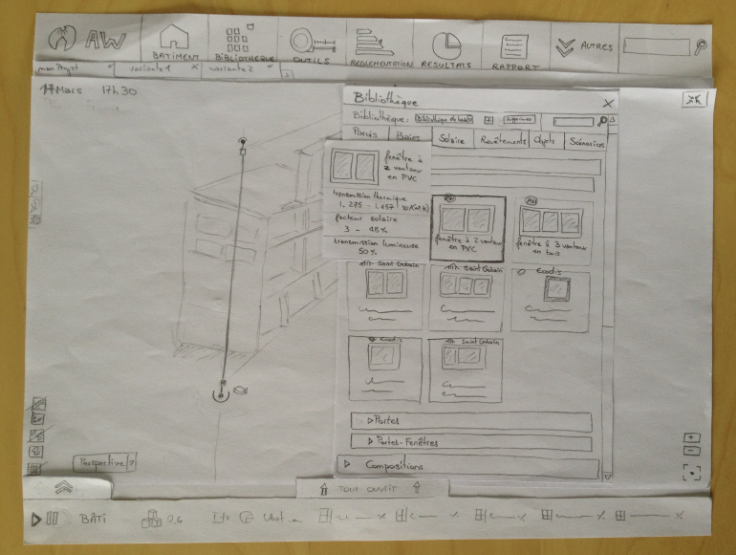 AW
BÂTIMENT
BIBLIOTHEQUE
OUTILS
REGLEMENTATION
RESULTATS
RAPPORT
AUTRES
mon Projet
variante 1 X
variante 2
17 Mars 17h30
Bibliothèque X
Bibliothèque: Bibliothèque de base
Parois
Baies
Solaire
Revêtements
Objets
Scénarios
fenêtre à
2 ventaux
en PVC
transmission thermique
facteur solaire
3 - 45%
transmission lumineuse
50%
fenêtre à 2 ventaux
en PVC
fenêtre à 3 ventaux
en bois
Saint Gobain
Saint Gobain
Ecodis
Ecodis
Saint Gobain
Portes
Portes-Fenêtres
Compositions
Perspective
TOUT OUVRIR
BÂTI
0,6